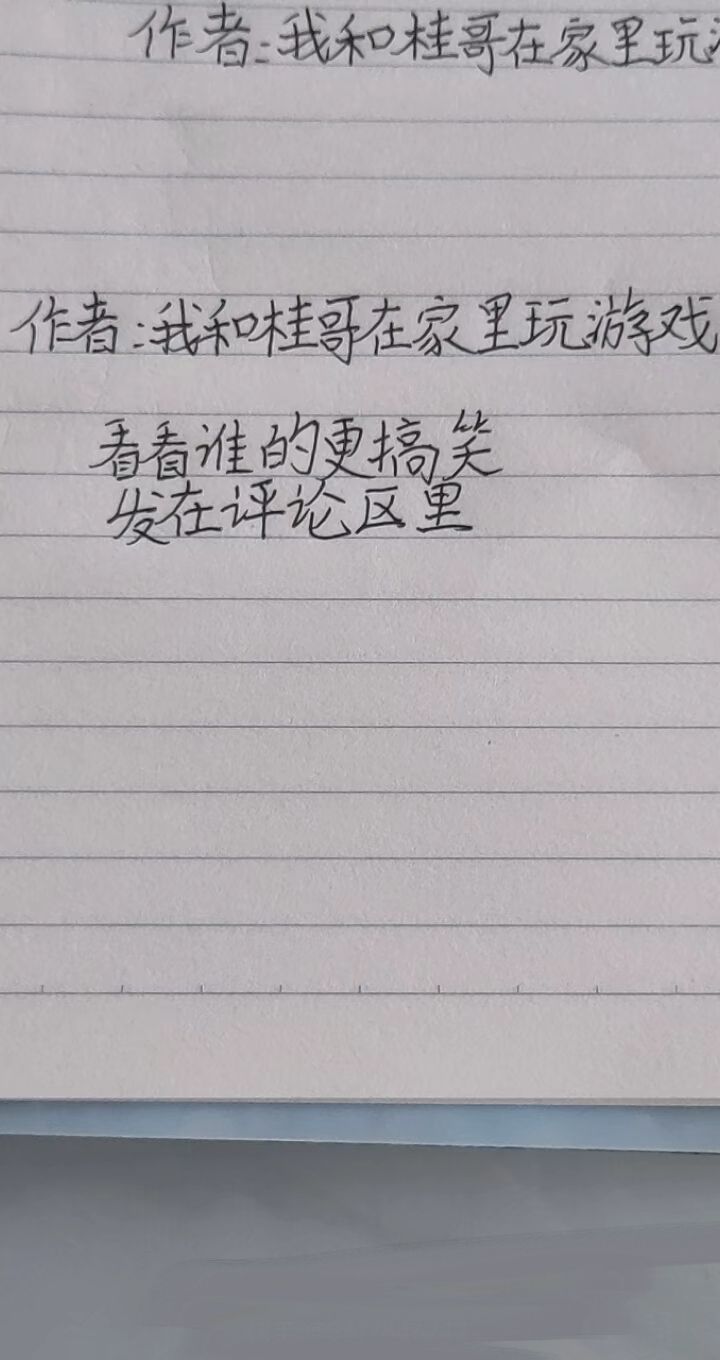 作者:我和桂哥在家里玩
作者:我和桂哥在家里玩游戏
看看谁的更搞笑
发在评论区里